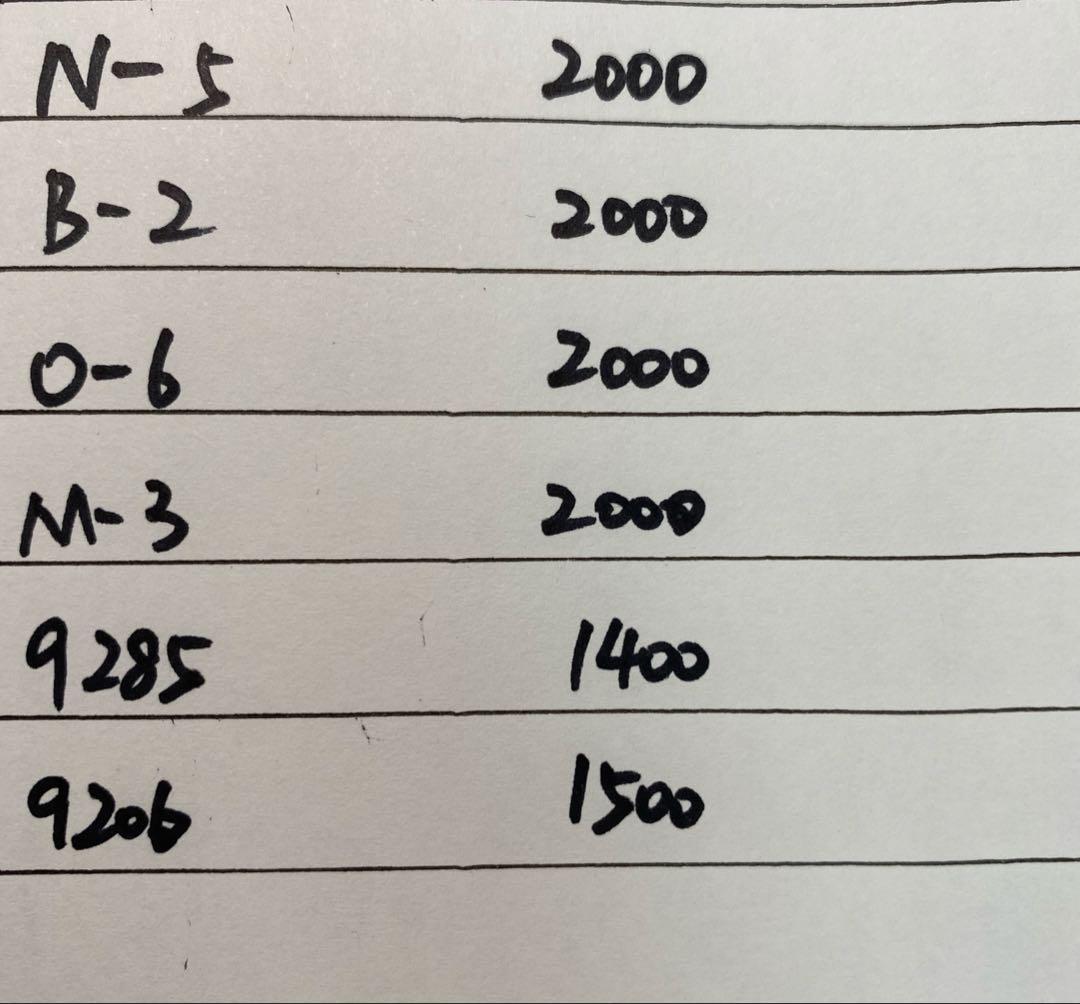 N-5 2000
B-2 2000
O-6 2000
M-3 2000
9285 1400
9206 1500